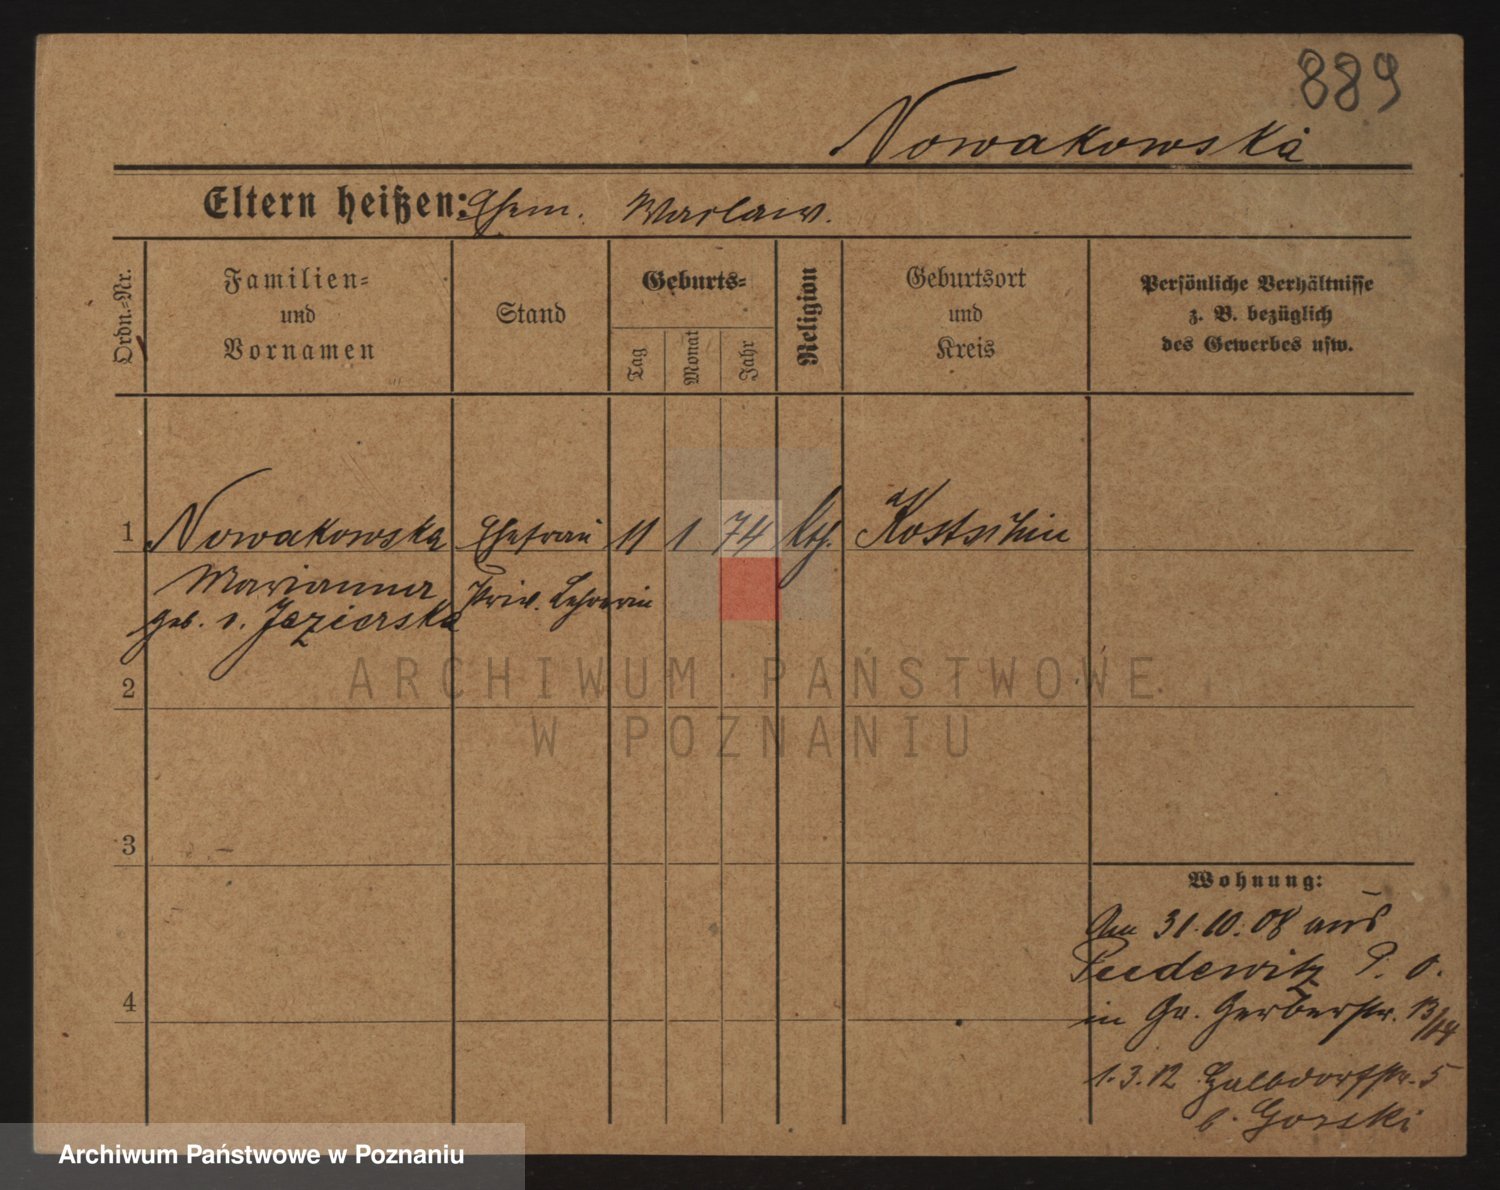 889
Nowakowska
Eltern heißen: Ehem. Waclaw.
Ordn.-Nr.
Familien-
und
Vornamen
Stand
Geburts-
Tag
Monat
Jahr
Religion
Geburtsort
und
Kreis
Persönliche Verhältnisse
z. B. bezüglich
des Gewerbes usw.
1 Nowakowska Ehefrau 11 1 74 kth. Kostschin
Marianna Priv. Lehrerin
geb. v. Jezierska
ARCHIWUM PAŃSTWOWE
2
W POZNANIU
3
Wohnung:
Am 31.10.08 aus
Pudewitz P. O.
4
in Gr. Gerberstr. 13/14
1.3.12 Halbdorfstr. 5
b. Gorski
Archiwum Państwowe w Poznaniu